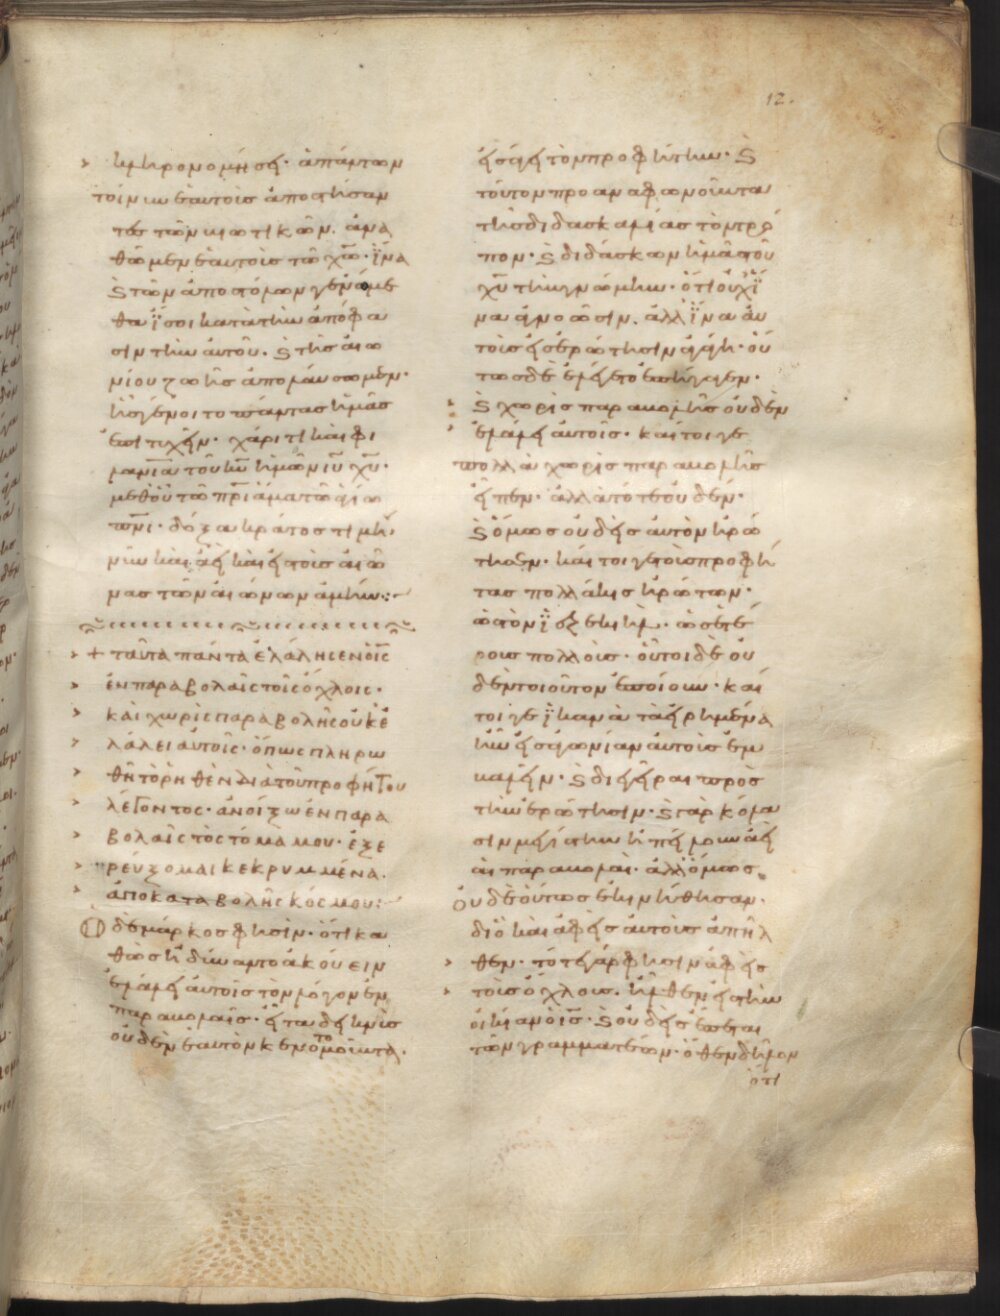 12.
κληρονομήσει· ἁπάντων
τοίνυν ἑαυτοὺς ἀποστήσαν
τες τῶν βιωτικῶν. ἀνα
θῶμεν ἑαυτοὺς τῶ χω· ἵνα
καὶ τῶν ἀποστόλων γενώμε
θα ἴσοι κατὰ τὴν ἀπόφα
σιν τὴν αὐτοῦ. καὶ τῆς αἰω
νίου ζωῆς ἀπολαύσωμεν·
ἧς γένοιτο πάντας ἡμᾶς
ἐπιτυχεῖν· χάριτι καὶ φι
λανία τοῦ κυ ἡμῶν ιυ χυ·
μεθοῦ τῶ πρὶ ἅμα τῶ ἁγίω
πνι· δόξα κράτος τιμὴ
νῦν καὶ ἀεὶ καὶ εἰς τοὺς αἰῶ
νας τῶν αἰώνων ἀμήν:
+ ταῦτα πάντα ἐλάλησεν ὁ ις
ἐν παραβολαῖς τοῖς ὄχλοις·
καὶ χωρὶς παραβολῆς οὐκ ἐ
λάλει αὐτοῖς· ὅπως πληρω
θῆ τὸ ῥηθὲν διὰ τοῦ προφήτου
λέγοντος· ἀνοίξω ἐν παρα
βολαῖς τὸ στόμα μου· ἐξε
ρεύξομαι κεκρυμμένα·
ἀπὸ καταβολῆς κόσμου:
Ὁ δὲ μάρκος φησὶν· ὅτι κα
θὼς ἠδύναντο ἀκούειν
ἐλάλει αὐτοῖς τὸν λόγον ἐν
παραβολαῖς· εἶτα δεικνὺς
οὐδὲν ἑαυτὸν κενοτομοῦντα·
εἰσάγει τὸν προφήτην· καὶ
τοῦτον προαναφωνοῦντα
τῆς διδασκαλίας τὸν τρό
πον· καὶ διδάσκων ἡμᾶς τοῦ
χυ τὴν γνώμην· ὅτι οὐχ ἵ
να ἀγνοῶσιν. ἀλλ ἵνα αὐ
τοὺς εἰς ἐρώτησιν ἀγάγη· οὕ
τως διελέγετο ἐπήγαγεν·
καὶ χωρὶς παραβολῆς οὐδὲν
ἐλάλει αὐτοῖς· καίτοιγε
πολλὰ χωρὶς παραβολῆς
εἶπεν· ἀλλὰ τότε οὐδέν·
καὶ ὅμως οὐδεὶς αὐτὸν ἠρώ
τησεν· καίτοιγε τοὺς προφή
τας πολλάκις ἠρώτων·
ὡς τὸν ἰεζεκιήλ· ὡς ἑτέ
ρους πολλούς· οὗτοι δὲ οὐ
δὲν τοιοῦτον ἐποίουν· καί
τοιγε ἱκανὰ τὰ εἰρημένα
ἦν εἰς ἀγωνίαν αὐτοὺς ἐμ
βαλεῖν· καὶ διεγεῖραι πρὸς
τὴν ἐρώτησιν· καὶ γὰρ κόλα
σιν μεγίστην ἠπείλουν ἀεὶ
αἱ παραβολαί· ἀλλ ὅμως
οὐδὲ οὕτως ἐκινήθησαν·
διὸ καὶ ἀφεὶς αὐτοὺς ἀπῆλ
θεν· τότε γάρ φησιν ἀφεὶς
τοὺς ὄχλους. ἦλθεν εἰς τὴν
οἰκίαν ὁ ις· καὶ οὐδεὶς ἕπεται
τῶν γραμματέων· ὅθεν δῆλον
ὅτι